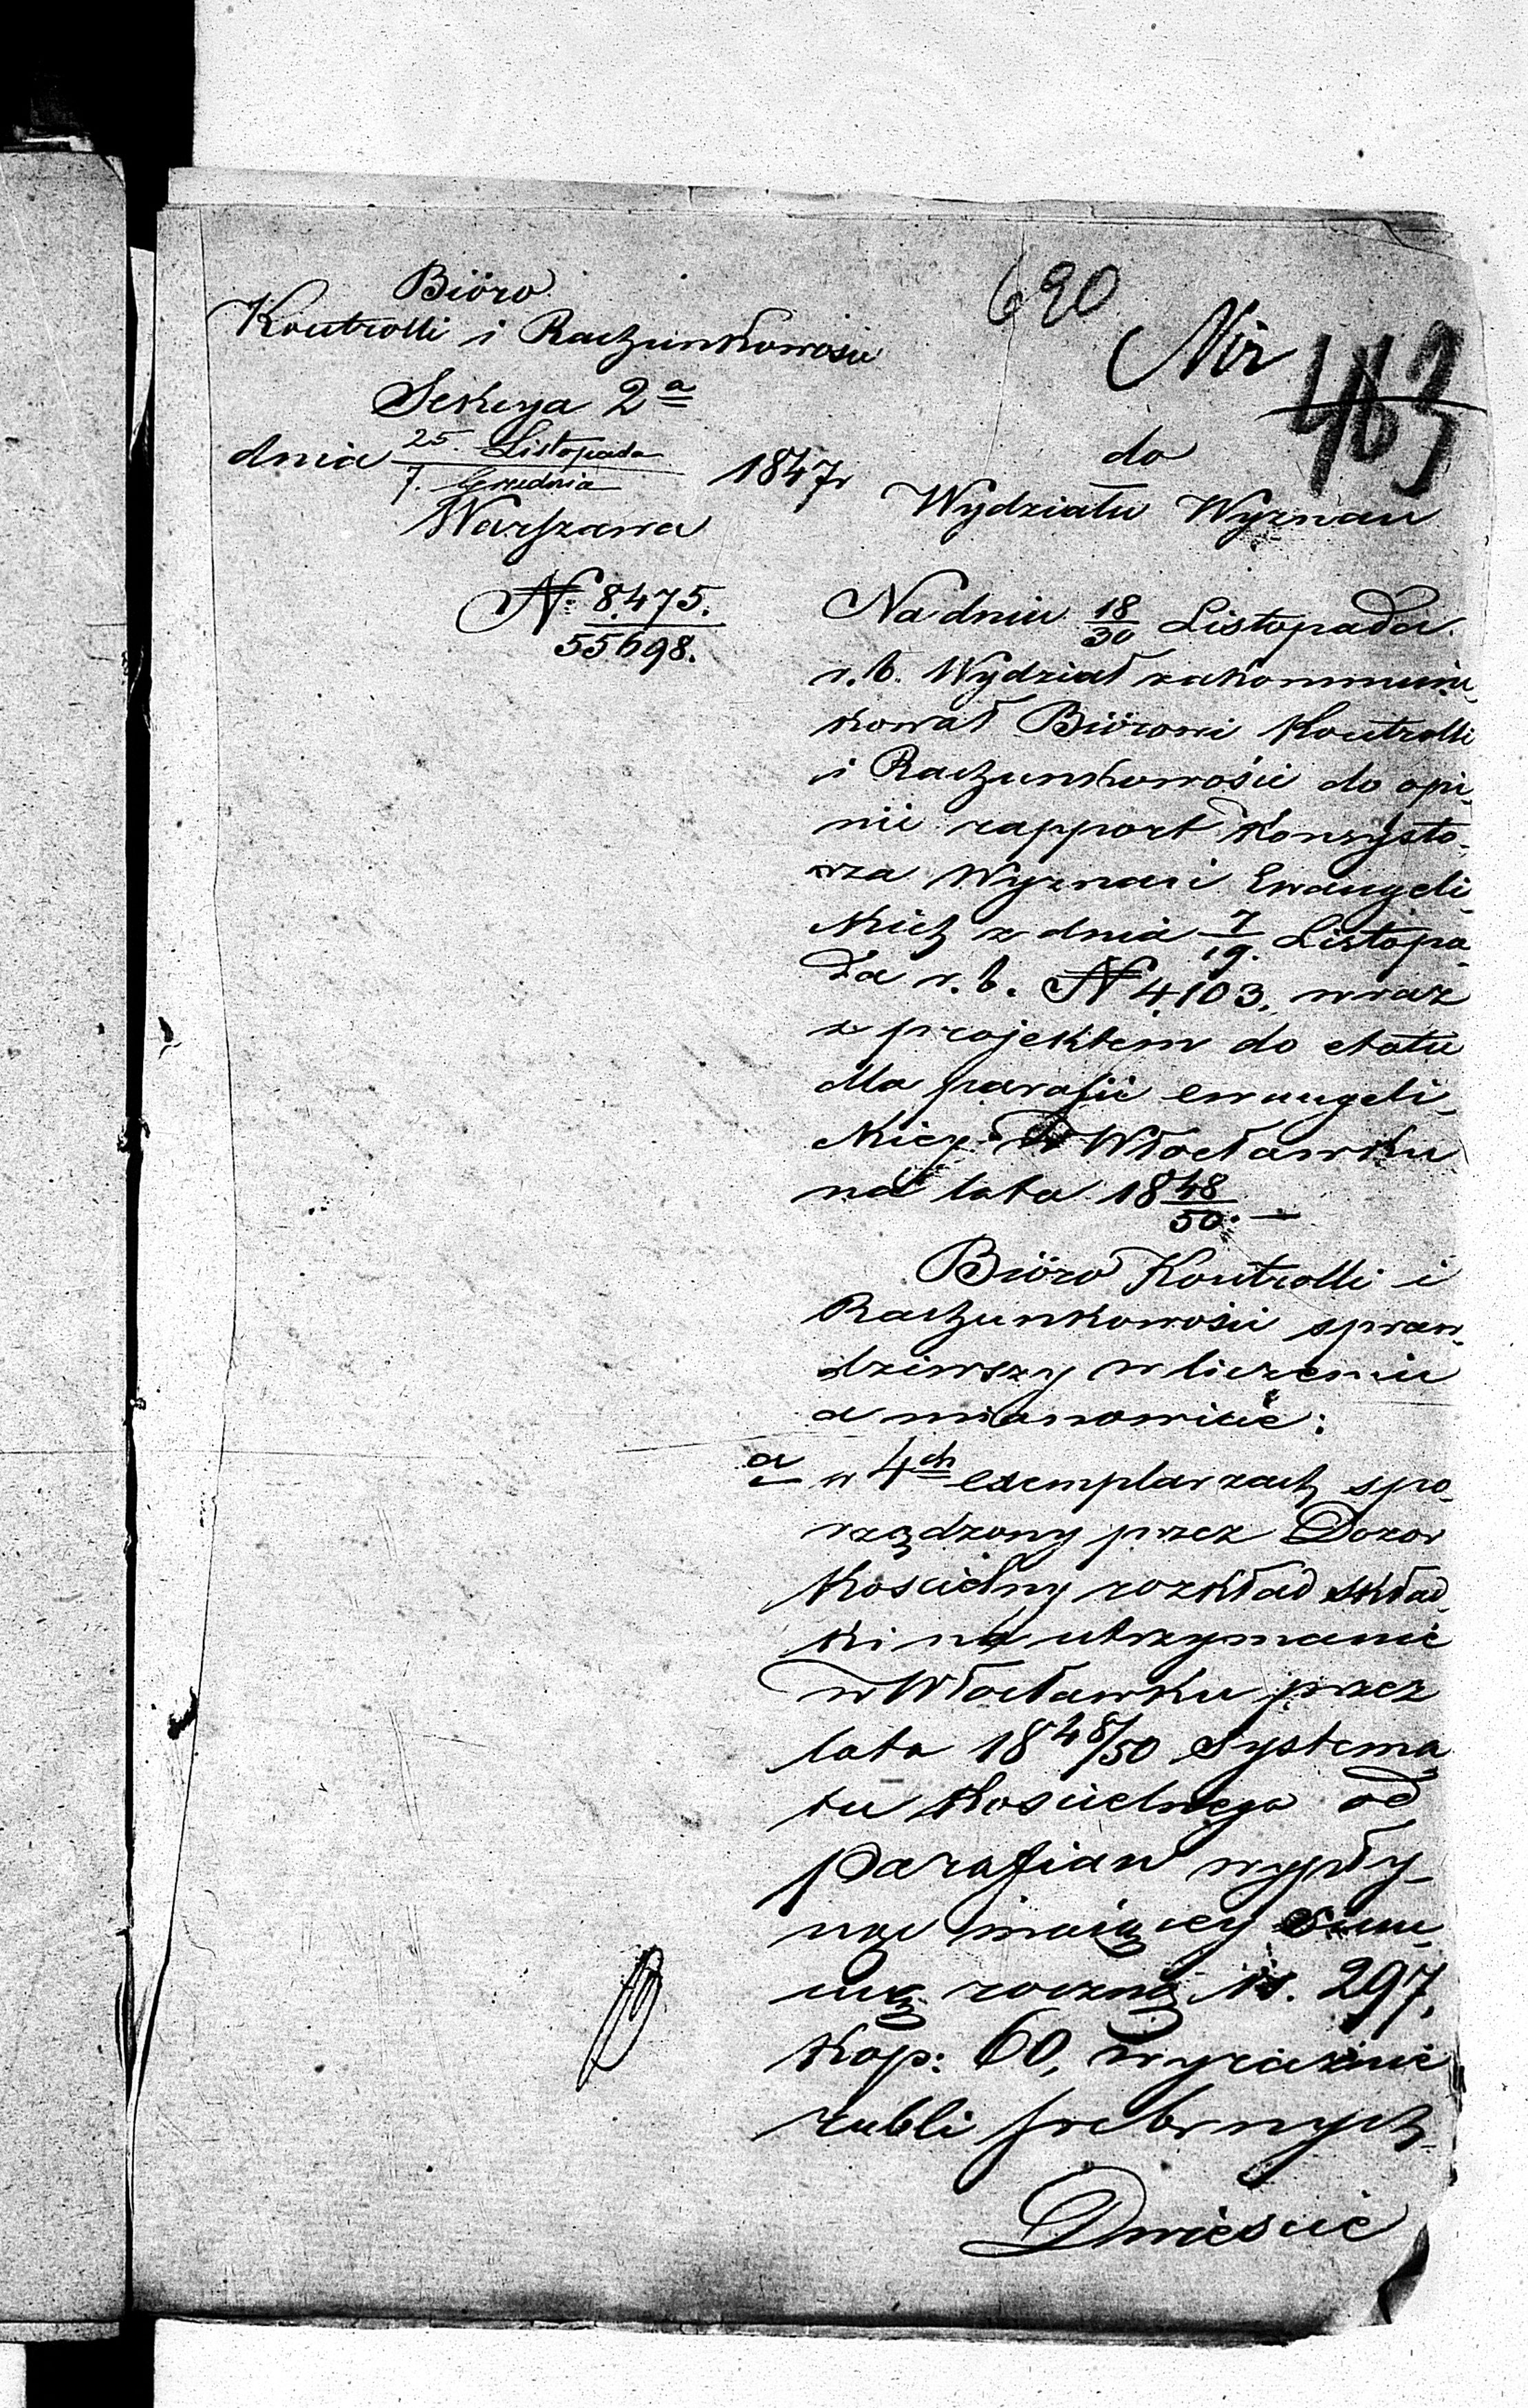 Biöro
Kontrolli i Rachunkowości
Sekcya 2a
dnia 25. Listopada / 7. Grudnia 1847r
Warszawa
N: 8475. / 55698.
690
463
do
Wydziału Wyznań
Na dniu 18/30 Listopada
r.b. Wydział zakommuni-
kował Biórowi Kontrolli
i Rachunkowości do opi-
nii rapport Konsysto-
rza Wyznań Ewangeli-
ckich z dnia 7/19. Listopa-
da r.b. N 4,103. wraz
z projektem do etatu
dla parafii ewangeli-
ckiej w Włocławku
na lata 1848/50. —
Bióro Kontrolli i
Rachunkowości spraw-
dziwszy w liczeniu
a mianowicie:
a w 4ch exemplarzach spo-
rządzony przez Dozor
Kościelny rozkład skład-
ki na utrzymanie
w Włocławku przez
lata 1848/50 Systema-
tu Kościelnego od
parafian wypły-
nąć maiącey Sum-
mę roczną rs. 297,
kop: 60, wyraźnie
rubli srebrnych
Dwieście